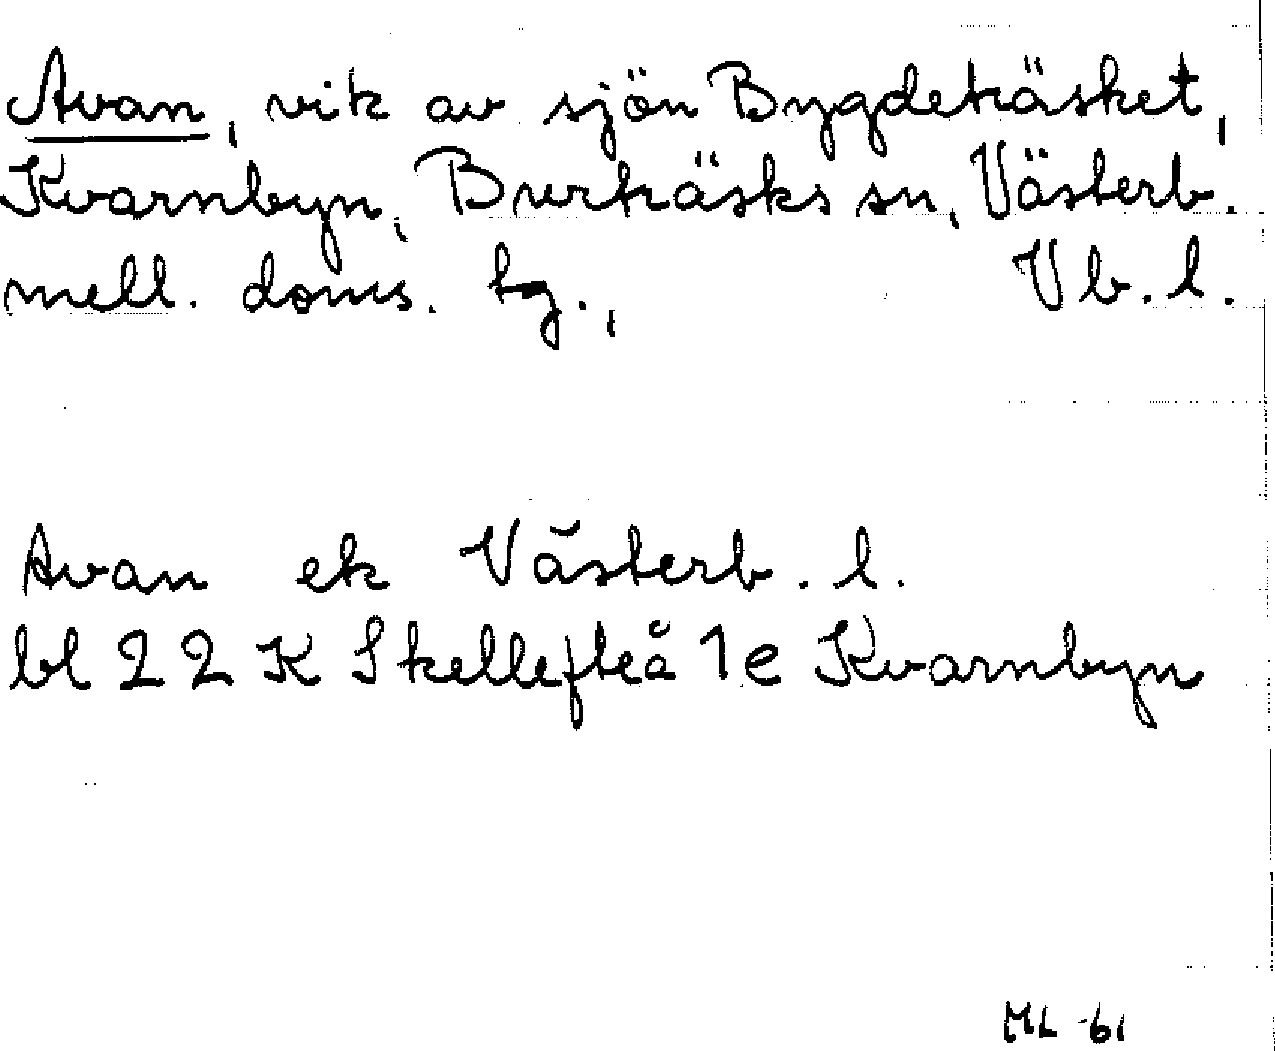 Avan, vik av sjön Bygdeträsket,
Kvarnbyn, Burträsks sn, Västerb.
mell. doms. tg., Vb. l.
Avan ek Västerb. l.
bl 22 K Skellefteå 1e Kvarnbyn
ML -61